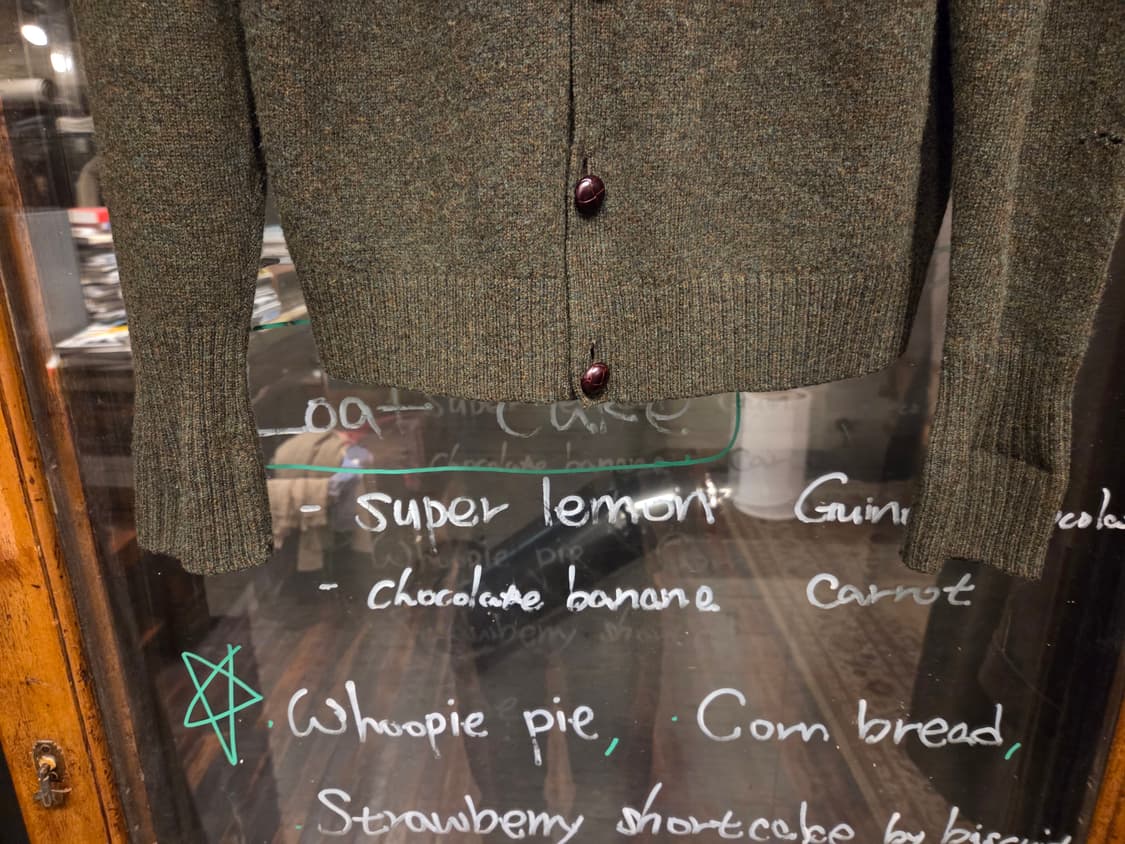 Loaf cake
- super lemon
- chocolate banana Carrot
Whoopie pie, · Corn bread,
Strawberry shortcake by